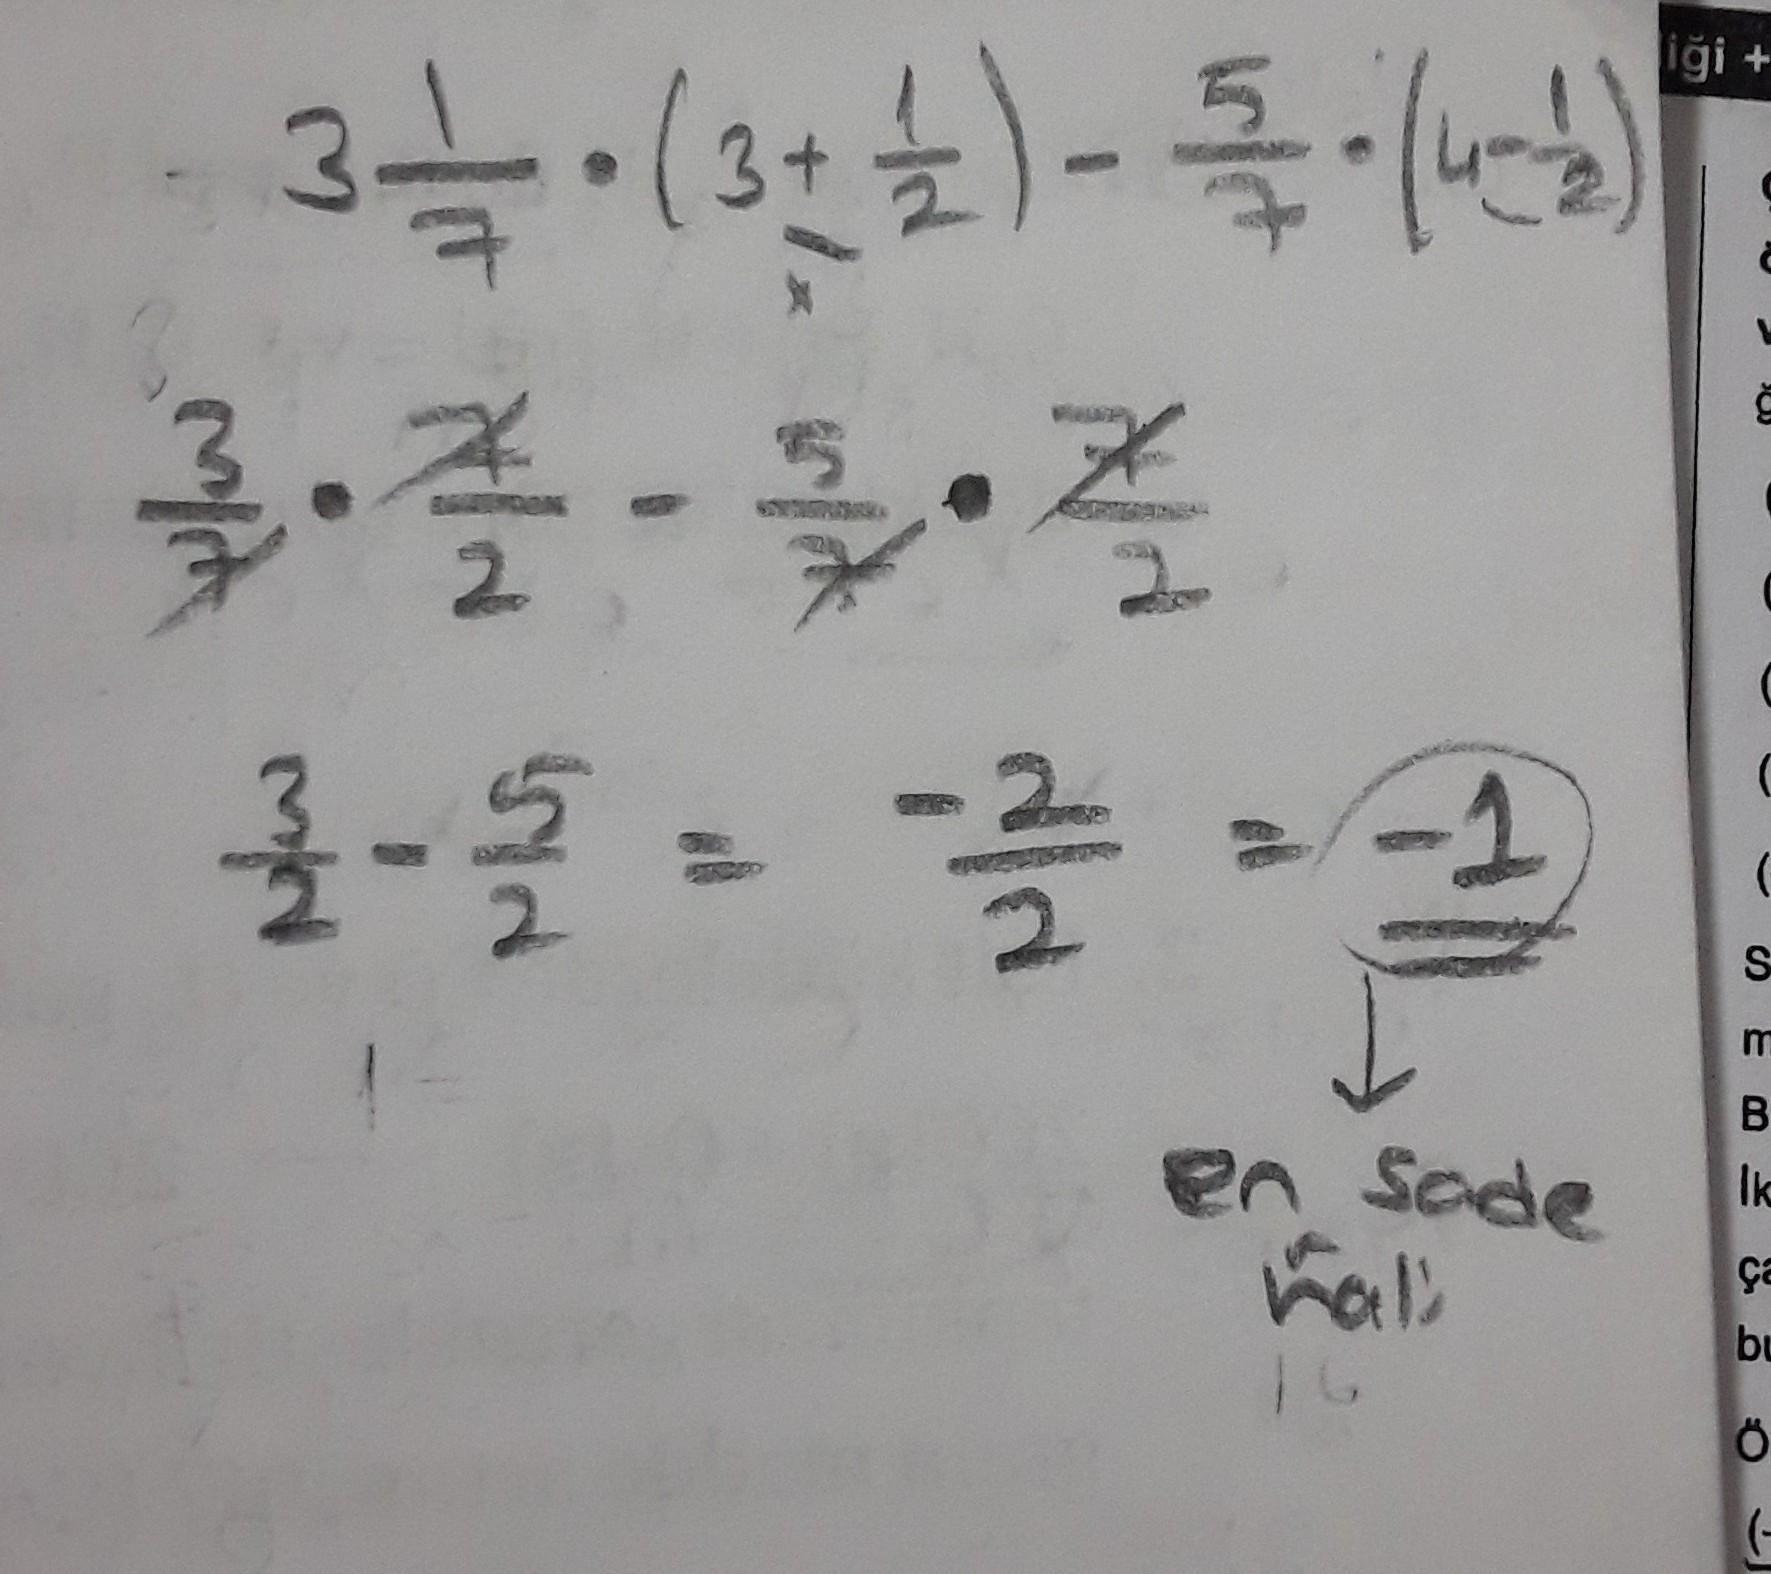 3 1/7 · (3 + 1/2) - 5/7 · (4 - 1/2)
3/7 · 7/2 - 5/7 · 7/2
3/2 - 5/2 = -2/2 = -1
en sade
hali
iği +
S
m
B
İk
ça
bu
Ö